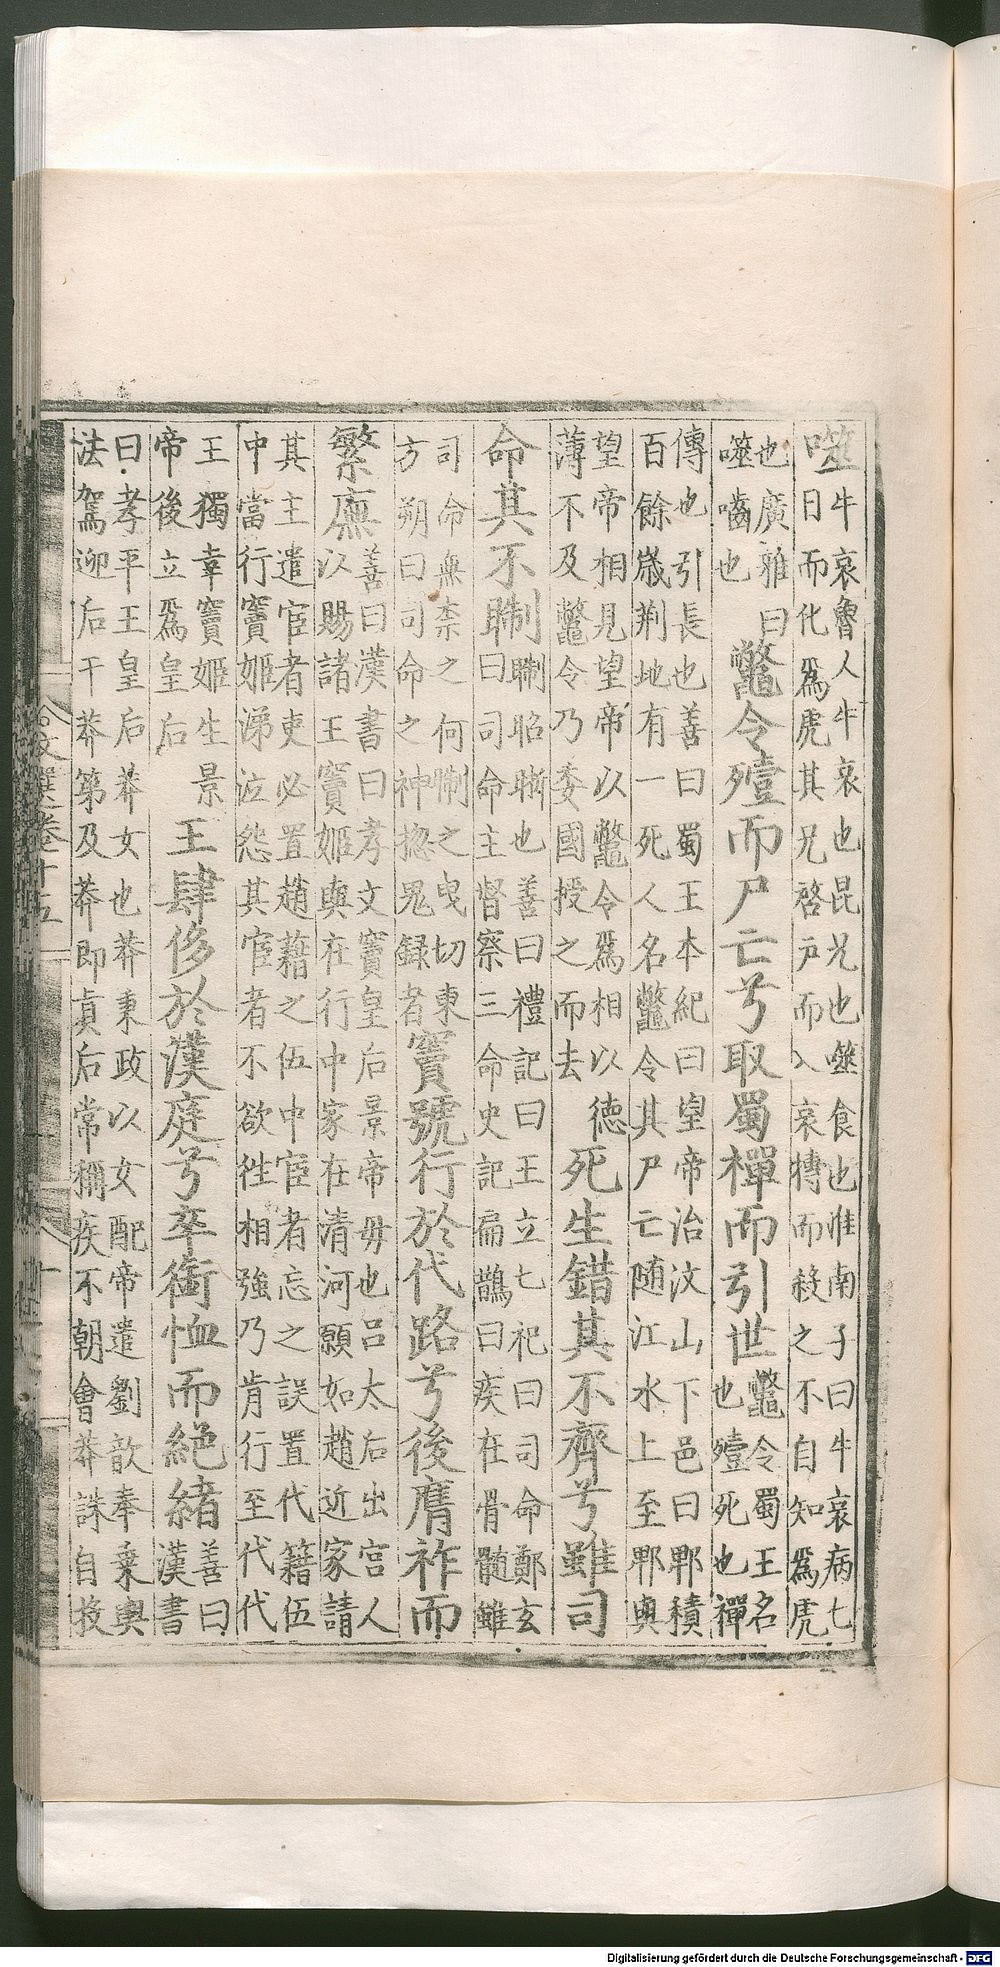 噬牛哀魯人牛哀也昆兄也噬食也惟南子曰牛哀病七
日而化爲虎其兄啓戶而入哀搏而殺之不自知爲虎
也廣雅曰
噬嚙也
鼈令殪而尸亡兮取蜀禪而引世
鼈令蜀王名
也殪死也禪
傳也引長也善曰蜀王本紀曰望帝治汶山下邑曰郫積
百餘歲荆地有一死人名鼈令其尸亡随江水上至郫與
望帝相見望帝以鼈令爲相以德
薄不及鼈令乃委國授之而去
死生錯其不齊兮雖司
命其不
昭晣也善曰禮記曰王立七祀曰司命鄭玄
曰司命主督察三命史記扁鵲曰疾在骨髓雖
司命無柰之何制之曳切東
方朔曰司命之神揔鬼録者
竇號行於代路兮後膺祚而
繁廡
善曰漢書曰孝文竇皇后景帝毋也吕太后出宫人
以賜諸王竇姬與在行中家在清河願如趙近家請
其主遣宦者吏必置趙藉之伍中宦者忘之誤置代籍伍
中當行竇姬涕泣怨其宦者不欲徃相強乃肯行至代代
王獨幸竇姬生景
帝後立爲皇后
王肆侈於漢庭兮卒銜恤而絶緒
善曰
漢書
曰孝平王皇后莽女也莽秉政以女配帝遣劉歆奉乗輿
法駕迎后于莽第及莽即真后常稱疾不朝會莽誅自投
文選卷十五
Digitalisierung gefördert durch die Deutsche Forschungsgemeinschaft - DFG